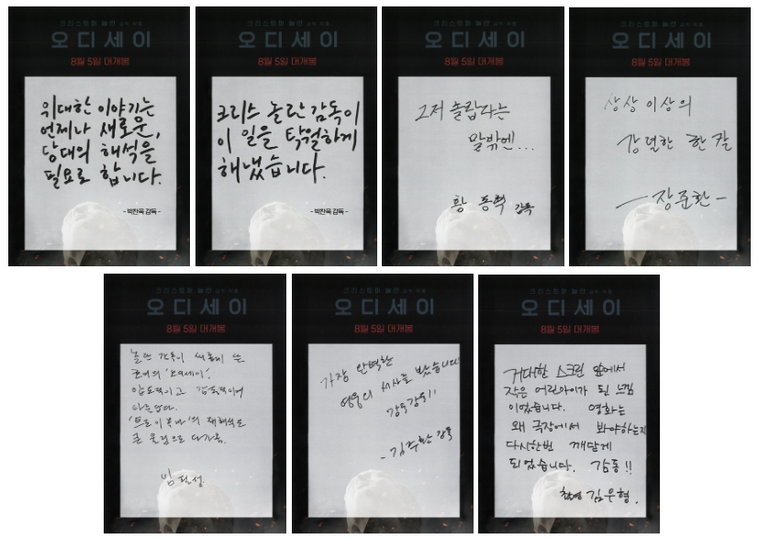 크리스토퍼 놀란 감독 작품
오디세이
8월 5일 대개봉
위대한 이야기는
언제나 새로운,
당대의 해석을
필요로 합니다.
- 박찬욱 감독 -
크리스토퍼 놀란 감독 작품
오디세이
8월 5일 대개봉
크리스 놀란 감독이
이 일을 탁월하게
해냈습니다.
- 박찬욱 감독 -
크리스토퍼 놀란 감독 작품
오디세이
8월 5일 대개봉
그저 놀랍다는
말밖엔...
황동혁 감독
크리스토퍼 놀란 감독 작품
오디세이
8월 5일 대개봉
상상 이상의
강렬한 한 칼
- 장준환 -
크리스토퍼 놀란 감독 작품
오디세이
8월 5일 대개봉
놀란 감독이 새롭게 쓴
'오디세이'.
압도적이고 감동적이며
아름답다.
'트로이 목마'의 재해석도
큰 울림으로 다가옴.
임필성
크리스토퍼 놀란 감독 작품
오디세이
8월 5일 대개봉
가장 완벽한
영웅의 서사를 봤습니다!
감동 감동!!
- 김주환 감독
크리스토퍼 놀란 감독 작품
오디세이
8월 5일 대개봉
거대한 스크린 앞에서
작은 어린아이가 된 느낌
이었습니다. 영화는
왜 극장에서 봐야하는지
다시한번 깨닫게
되었습니다. 감동!!
김우형.